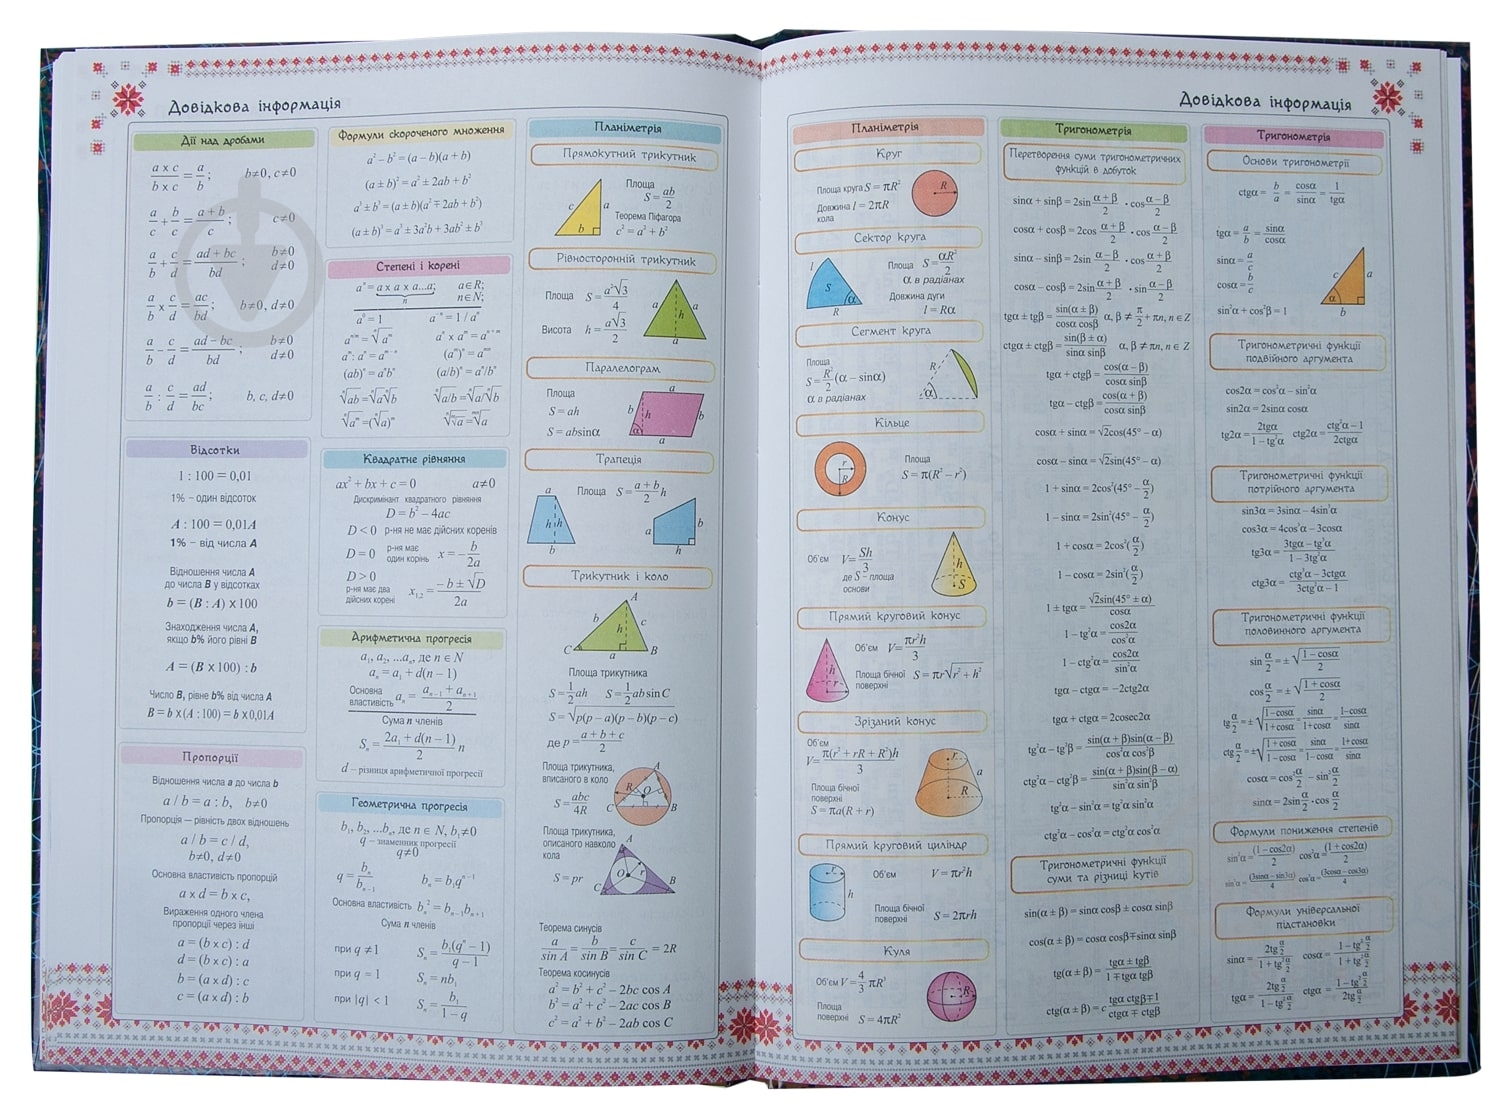 Довідкова інформація
Дії над дробами
a x c / b x c = a / b ; b≠0, c≠0
a / c + b / c = a + b / c ; c≠0
a / b + c / d = ad + bc / bd ; b≠0 d≠0
a / b x c / d = ac / bd ; b≠0, d≠0
a / b - c / d = ad – bc / bd ; b≠0 d≠0
a / b : c / d = ad / bc ; b, c, d≠0
Відсотки
1 : 100 = 0,01
1% – один відсоток
A : 100 = 0,01A
1% – від числа A
Відношення числа A
до числа B у відсотках
b = (B : A) x 100
Знаходження числа A,
якщо b% його рівні B
A = (B x 100) : b
Число B, рівне b% від числа A
B = b x (A : 100) = b x 0,01A
Пропорції
Відношення числа a до числа b
a / b = a : b, b≠0
Пропорція — рівність двох відношень
a / b = c / d,
b≠0, d≠0
Основна властивість пропорцій
a x d = b x c,
Вираження одного члена
пропорції через інші
a = (b x c) : d
d = (b x c) : a
b = (a x d) : c
c = (a x d) : b
Формули скороченого множення
a² – b² = (a – b)(a + b)
(a ± b)² = a² ± 2ab + b²
a³ ± b³ = (a ± b)(a² ∓ 2ab + b²)
(a ± b)³ = a³ ± 3a²b + 3ab² ± b³
Степені і корені
aⁿ = a x a x a...a; a∈R;
n n∈N;
Квадратне рівняння
ax² + bx + c = 0 a≠0
Дискримінант квадратного рівняння
D = b² – 4ac
D < 0 р-ня не має дійсних коренів
D = 0 р-ня має один корінь x = – b / 2a
D > 0
р-ня має два дійсних корені x₁,₂ = – b ± √D / 2a
Арифметична прогресія
a₁, a₂, ...aₙ, де n ∈ N
aₙ = a₁ + d(n – 1)
Основна властивість aₙ = aₙ₋₁ + aₙ₊₁ / 2
Сума n членів
Sₙ = 2a₁ + d(n – 1) / 2 n
d – різниця арифметичної прогресії
Геометрична прогресія
b₁, b₂, ...bₙ, де n ∈ N, b₁≠0
q – знаменник прогресії
q≠0
q = bₙ / bₙ₋₁ bₙ = b₁qⁿ⁻¹
Основна властивість bₙ² = bₙ₋₁bₙ₊₁
Сума n членів
при q ≠1 Sₙ = b₁(qⁿ – 1) / q – 1
при q = 1 Sₙ = nb₁
при |q| < 1 Sₙ = b₁ / 1 – q
Планіметрія
Прямокутний трикутник
Площа
S = ab / 2
Теорема Піфагора
c² = a² + b²
c a b
Рівносторонній трикутник
Площа S = a²√3 / 4
Висота h = a√3 / 2
a a h a
Паралелограм
Площа
S = ah
S = absinα
a b h b α a
Трапеція
Площа S = a + b / 2 h
a h h b
a b h
Трикутник і коло
A b c h C a B
Площа трикутника
S = 1 / 2 ah S = 1 / 2 ab sin C
S = √p(p – a)(p – b)(p – c)
де p = a + b + c / 2
Площа трикутника,
вписаного в коло
S = abc / 4R
A R O C B
Площа трикутника,
описаного навколо
кола
S = pr
A O r C B
Теорема синусів
a / sin A = b / sin B = c / sin C = 2R
Теорема косинусів
a² = b² + c² – 2bc cos A
b² = a² + c² – 2ac cos B
c² = a² + b² – 2ab cos C
Довідкова інформація
Планіметрія
Круг
Площа круга S = πR²
Довжина кола l = 2πR
R
Сектор круга
Площа S = αR² / 2
α в радіанах
Довжина дуги
l = Rα
l S α R
Сегмент круга
Площа
S = R² / 2 (α – sinα)
α в радіанах
R α
Кільце
Площа
S = π(R² – r²)
r R
Конус
Об'єм V= Sh / 3
де S – площа
основи
h S
Прямий круговий конус
Об'єм V= πr²h / 3
Площа бічної поверхні S = πr√r² + h²
h r
Зрізаний конус
Об'єм
V= π(r² + rR + R²)h / 3
Площа бічної
поверхні
S = πa(R + r)
r a R
Прямий круговий циліндр
Об'єм V = πr²h
Площа бічної поверхні S = 2πrh
r h
Куля
Об'єм V = 4 / 3 πR³
Площа поверхні S = 4πR²
R
Тригонометрія
Перетворення суми тригонометричних
функцій в добуток
sinα + sinβ = 2sin α + β / 2 · cos α – β / 2
cosα + cosβ = 2cos α + β / 2 · cos α – β / 2
sinα – sinβ = 2sin α – β / 2 · cos α + β / 2
cosα – cosβ = 2sin α + β / 2 · sin α – β / 2
tgα ± tgβ = sin(α ± β) / cosα cosβ α, β ≠ π / 2 + πn, n ∈ Z
ctgα ± ctgβ = sin(β ± α) / sinα sinβ α, β ≠ πn, n ∈ Z
tgα + ctgβ = cos(α – β) / cosα sinβ
tgα – ctgβ = cos(α + β) / cosα sinβ
cosα + sinα = √2cos(45° – α)
cosα – sinα = √2sin(45° – α)
1 + sinα = 2cos²(45° – α / 2)
1 – sinα = 2sin²(45° – α / 2)
1 + cosα = 2cos²(α / 2)
1 – cosα = 2sin²(α / 2)
1 ± tgα = √2sin(45° ± α) / cosα
1 – tg²α = cos2α / cos²α
1 – ctg²α = cos2α / sin²α
tgα – ctgα = –2ctg2α
tgα + ctgα = 2cosec2α
tg²α – tg²β = sin(α + β)sin(α – β) / cos²α cos²β
ctg²α – ctg²β = sin(α + β)sin(β – α) / sin²α sin²β
tg²α – sin²α = tg²α sin²α
ctg²α – cos²α = ctg²α cos²α
Тригонометричні функції
суми та різниці кутів
sin(α ± β) = sinα cosβ ± cosα sinβ
cos(α ± β) = cosα cosβ∓sinα sinβ
tg(α ± β) = tgα ± tgβ / 1∓tgα tgβ
Тригонометрія
Основи тригонометрії
ctgα = b / a = cosα / sinα = 1 / tgα
tgα = a / b = sinα / cosα
sinα = a / c
cosα = b / c
sin²α + cos²β = 1
c a α b
Тригонометричні функції
подвійного аргумента
cos2α = cos²α – sin²α
sin2α = 2sinα cosα
tg2α = 2tgα / 1 – tg²α ctg2α = ctg²α – 1 / 2ctgα
Тригонометричні функції
потрійного аргумента
sin3α = 3sinα – 4sin³α
cos3α = 4cos³α – 3cosα
tg3α = 3tgα – tg³α / 1 – 3tg²α
ctg3α = ctg³α – 3ctgα / 3ctg²α – 1
Тригонометричні функції
половинного аргумента
sin α / 2 = ± √1 – cosα / 2
cos α / 2 = ± √1 + cosα / 2
tg α / 2 = ± √1–cosα / 1+cosα = sinα / 1+cosα = 1–cosα / sinα
ctg α / 2 = ±√1+cosα / 1–cosα = sinα / 1–cosα = 1+cosα / sinα
cosα = cos² α / 2 – sin² α / 2
sinα = 2sin α / 2 · cos α / 2
Формули пониження степенів
sin²α = (1–cos2α) / 2 cos²α = (1+cos2α) / 2
sin³α = (3sinα–sin3α) / 4 cos³α = (3cosα–cos3α) / 4
Формули універсальної
підстановки
sinα = 2tg α / 2 / 1 + tg² α / 2 cosα = 1 – tg² α / 2 / 1 + tg² α / 2
tgα = 2tg α / 2 / 1 – tg² α / 2 ctgα = 1 – tg² α / 2 / 2tg α / 2